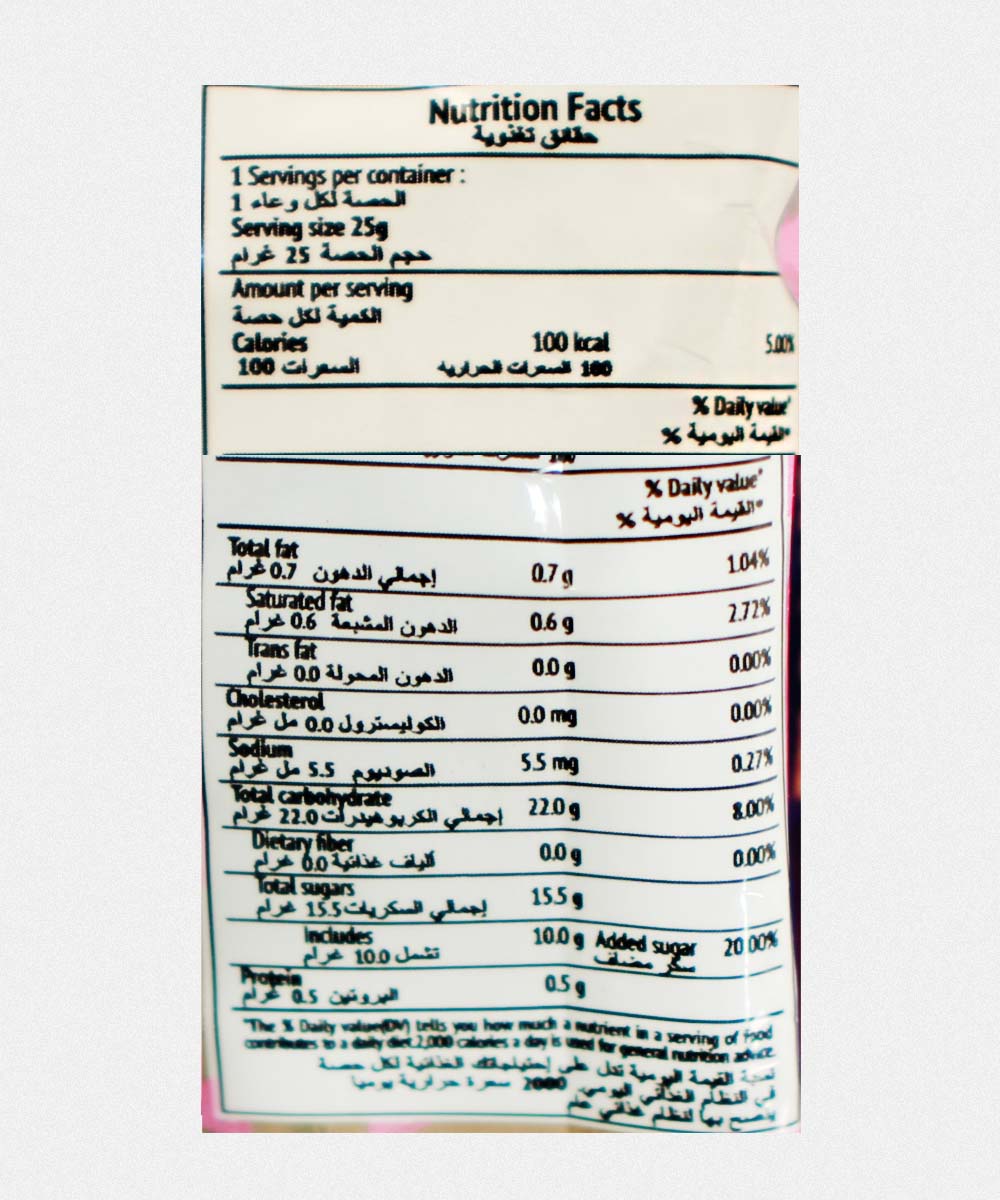 Nutrition Facts
حقائق تغذوية
1 Servings per container :
الحصة لكل وعاء 1
Serving size 25g
حجم الحصة 25 غرام
Amount per serving
الكمية لكل حصة
Calories 100 kcal 5.00%
السعرات 100 100 السعرات الحراريه
% Daily value*
القيمة اليومية %*
% Daily value*
القيمة اليومية %*
Total fat
إجمالي الدهون 0.7 غرام 0.7 g 1.04%
Saturated fat
الدهون المشبعة 0.6 غرام 0.6 g 2.72%
Trans fat
الدهون المحولة 0.0 غرام 0.0 g 0.00%
Cholesterol
الكوليسترول 0.0 مل غرام 0.0 mg 0.00%
Sodium
الصوديوم 5.5 مل غرام 5.5 mg 0.27%
Total carbohydrate
إجمالي الكربوهيدرات 22.0 غرام 22.0 g 8.00%
Dietary fiber
ألياف غذائية 0.0 غرام 0.0 g 0.00%
Total sugars
إجمالي السكريات 15.5 غرام 15.5 g
Includes 10.0 g Added sugar 20.00%
تشمل 10.0 غرام سكر مضاف
Protein
البروتين 0.5 غرام 0.5 g
*The % Daily value(DV) tells you how much a nutrient in a serving of food
contributes to a daily diet.2,000 calories a day is used for general nutrition advice.
القيمة اليومية تدل على إحتياجاتك الغذائية لكل حصة
في النظام الغذائي اليومي. 2000 سعرة حرارية يوميا
ينصح بها لنظام غذائي عام